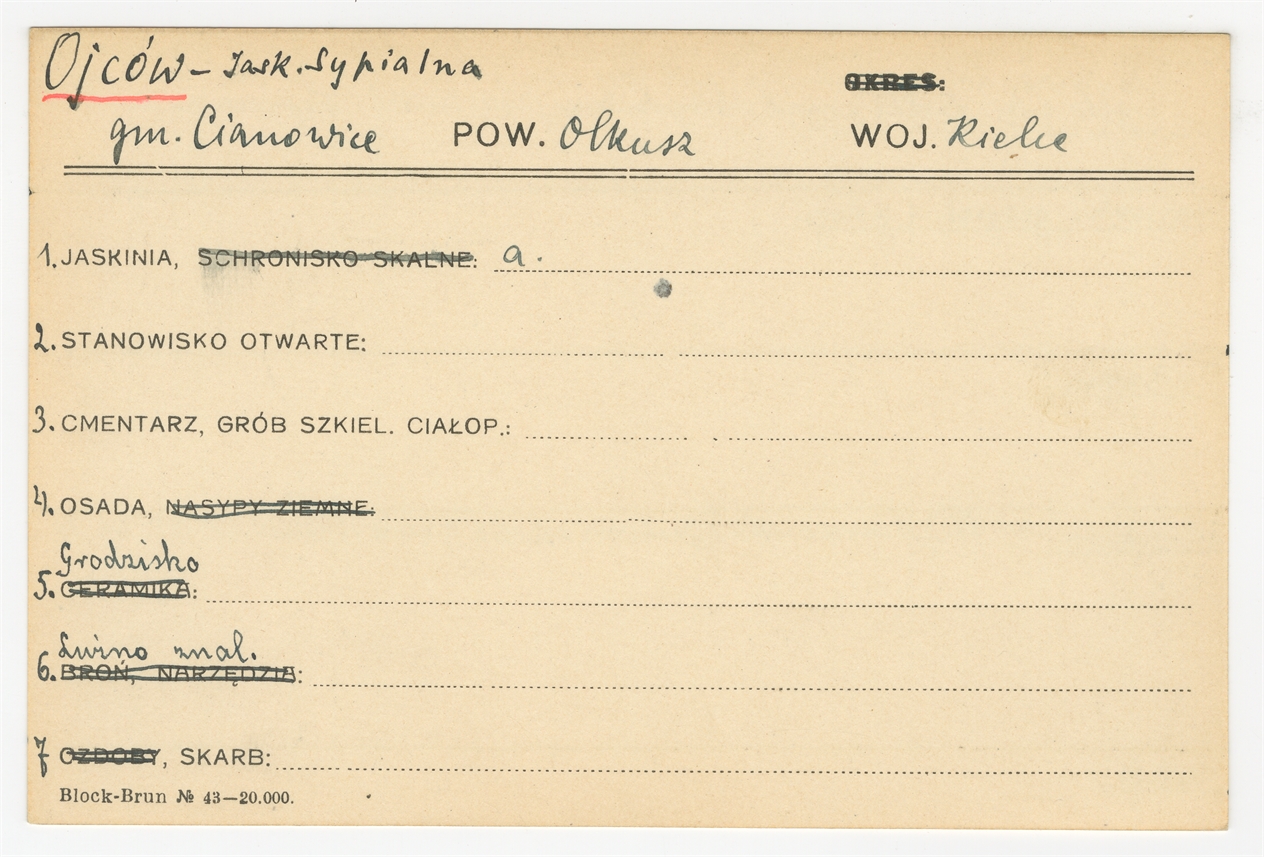 Ojców - Jask. Sypialna
OKRES:
gm. Cianowice POW. Olkusz WOJ. Kielce
1. JASKINIA, SCHRONISKO SKALNE: a.
2. STANOWISKO OTWARTE:
3. CMENTARZ, GRÓB SZKIEL. CIAŁOP.:
4. OSADA, NASYPY ZIEMNE:
Grodzisko
5. CERAMIKA:
Luźno znal.
6. BROŃ, NARZĘDZIA:
7 OZDOBY, SKARB:
Block-Brun № 43—20.000.